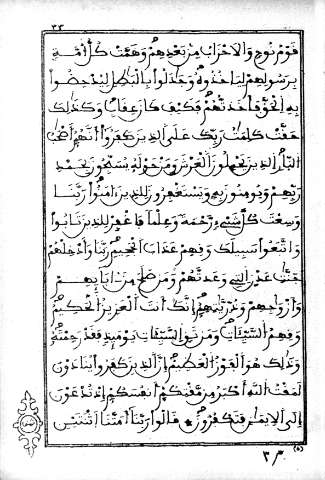 قوم نوح والاحزاب من بعدهم وهمت كل أمة
برسولهم لياخذوه وجدلوا بالبطل ليدحضوا
به الحق فأخذتهم فكيف كان عقاب وكذلك
حقت كلمت ربك على الذين كفروا أنهم أصحب
النار الذين يحملون العرش ومن حوله يسبحون بحمد
ربهم ويومنون به ويستغفرون للذين ءامنوا ربنا
وسعت كل شيء رحمة وعلما فاغفر للذين تابوا
واتبعوا سبيلك وقهم عذاب الجحيم ربنا وأدخلهم
جنت عدن التي وعدتهم ومن صلح من ءابايهم
وأزوجهم وذريتهم إنك أنت العزيز الحكيم
وقهم السيئات ومن تق السيئات يوميذ فقد رحمته
وذلك هو الفوز العظيم إن الذين كفروا ينادون
لمقت الله أكبر من مقتكم أنفسكم إذ تدعون
إلى الايمن فتكفرون قالوا ربنا أمتنا اثنتين
(٥)